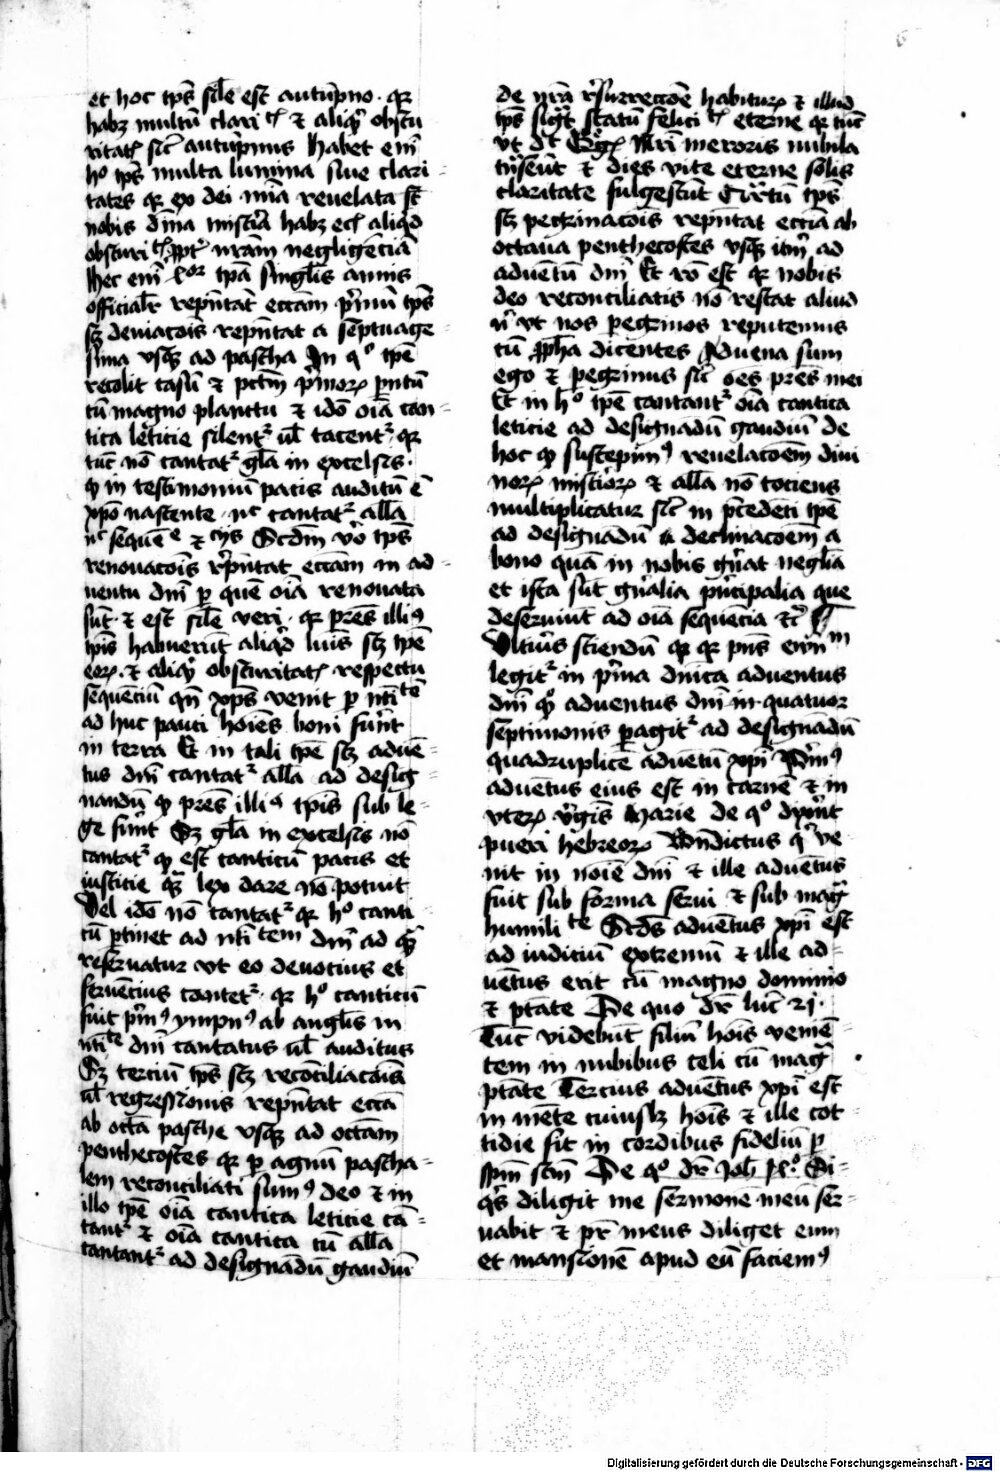 et hoc tp̄s sil̄e est autūpno · qꝛ
habꝫ multū clarit͛ ⁊ aliqͥ obscu
ritat͛ sic̄ autūpnus habet em̄
hͦ tp̄s multa lumina siue clari-
tates qꝛ ex dei mīa reuelata st̄
nobis dīna mist̄ia habꝫ ec̄ aliqd
obscurit͛ ꝓpt͛ nr̄am negligēciā
Hec em̄ tp̄a singl̄is annis
officialr̄ rep̄ntāt eccam p̄mū tp̄s
sꝫ deuiacōis rep̄ntat a septuage-
sima vsqꝫ ad pascha In qͦ tp̄e
recolit casū ⁊ pctm̄ p̄moꝝ pntū
cū magno planctu ⁊ idō oīa can-
tica leticie silent᷑ ul̄ tacent᷑ qꝛ
tūc nō cantat᷑ gl̄a in excelsis ·
ꝙ in testimoniū pacis auditū ē
xp̄o nascente nc̄ cantat᷑ all̄a
nc̄ sequēe ⁊ cͥis Scd̄m vͦo tp̄s
renouacōis rp̄ntat eccam in ad-
uentu dnī ꝑ quē oīa renouata
sūt ⁊ est sil̄e veri · qꝛ pr̄es illiꝰ
tp̄is habuerūt aliqͥd lucis sꝫ tp̄e
eoꝝ ⁊ aliqͥ obscuritat͛ respectu
sequēciū qn̄ xp̄s venit ꝑ nīte
ad huc pauci hoīes boni fuer̄t
in terra Et in tali tp̄e sꝫ aduē-
tus dnī cantat᷑ all̄a ad desig-
nandū ꝙ pr̄es illiꝰ tp̄is sub le-
ge fuer̄t Sꝫ gl̄a in excelsis nō
cantat᷑ ꝙ est canticū pacis et
iusticie qͣ lex dare nō potuit
Vel idō nō cantat᷑ qꝛ hͦ canti
cū ꝑtinet ad nītem dnī ad qͣ
reseruatur vt eo deuocius et
feruēcius cantet᷑ · qꝛ hͦ canticū
fuit p̄mꝰ ympnꝰ ab angl̄is in
nīte dnī cantatus ul̄ auditus
Sꝫ terciū tp̄s sꝫ recōciliacōis
ul̄ regressionis rep̄ntat ecca
ab octā pasche vsqꝫ ad octam
penthecostes qꝛ ꝑ agnū pascha-
lem reconciliati sumꝰ deo ⁊ in
illo tp̄e oīa cantica leticie cā-
tant᷑ ⁊ oīa cantica cū alla
cantant᷑ ad designādū gaudiū
de nrā rsurreccōe habituꝝ ⁊ illud
tp̄s sigͣt statū felicit͛ eterne qꝛ tūc
vt dt Nr̄i meroris nubila
tͣnseūt ⁊ dies vite eterne solis
claritate fulgescūt Qͣrtū tp̄s
sꝫ peg͛nacōis rep̄ntat eccia ab
octaua penthecostes vsqꝫ itm̄ ad
aduētū dnī Et rō est qꝛ nobis
deo reconciliatis nō restat aliud
nͥ vt nos pegͥnos reputemus
cū ꝓph̄a dicentes Aduena sum
ego ⁊ pegͥnus sic̄ oēs pr̄es mei
Et in hͦ tp̄e cantant᷑ oīa cantica
leticie ad designādū gaudiū de
hoc ꝙ suscepimꝰ reuelacōem diui
noꝝ mist̄ioꝝ ⁊ all̄a nō tociens
multiplicatur sic̄ in p̄cedēti tp̄e
ad designādū declinacōem a
bono quā in nobis gn̄at negl̄ia
et ista sūt gn̄alia p̄ncipalia que
deseruiūt ad oīa sequēcia ⁊c̄
Vlterius sciendū qꝛ qꝛ pn̄s ewnm
legit᷑ in p̄ma dnīca aduentus
dnī qͣ aduentus dnī in quatuor
septimonis ꝑagit᷑ ad designādū
quadruplicē aduētū xp̄i Pͥmꝰ
aduētus eius est in carnē ⁊ in
vteꝝ vͥgis Marie de qͦ dixer̄t
pueri hebreoꝝ Bn̄dictus qͥ ve
nit in noīe dnī ⁊ ille aduētus
fuit sub forma serui ⁊ sub magͣ
humilite Scd̄s aduētus xp̄i est
ad iuditiū extremū ⁊ ille ad-
uētus erit cū magno dominio
⁊ ptāte De quo dr̄ luc̄ 21 ·
Tūc videbūt filiū hoīs venīē-
tem in nubibus celi cū magͣ
ptāte Tercius aduētus xp̄i est
in mēte cuiuslꝫ hoīs ⁊ ille cot-
tidie fit in cordibus fideliū ꝑ
sp̄m scm̄ De qͦ dr̄ Joh̄ Si-
qͥs diligit me sermonē meū ser-
uabit ⁊ pr̄ meus diliget eum
et mansionē apud eū faciemꝰ
Digitalisierung gefördert durch die Deutsche Forschungsgemeinschaft - DFG